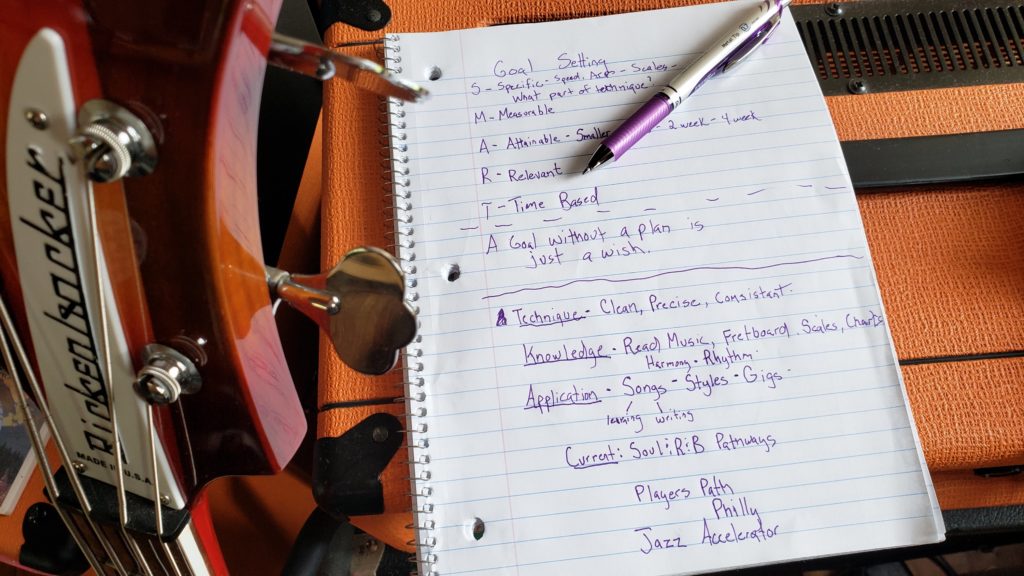 Rickenbacker
MADE IN U.S.A.
Goal Setting
S - Specific - Speed, - Scales -
What part of technique?
M - Measurable
A - Attainable - Smaller - 2 week - 4 week
R - Relevant
T - Time Based
A Goal without a plan is
just a wish.
Technique - Clean, Precise, Consistant
Knowledge - Read Music, Fretboard Scales, Chords
Harmony - Rhythm
Application - Songs - Styles - Gigs
learning writing
Current: Soul: R:B Pathways
Players Path
Philly
Jazz Accelerator